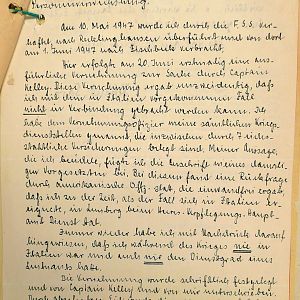 Personenverwechslung.
Am 10. Mai 1947 wurde ich durch die F.S.S. ver-
haftet, nach Recklinghausen überführt und von dort
am 1. Juni 1947 nach Eselheide verbracht.
Hier erfolgte am 20. Juni erstmalig eine aus-
führliche Vernehmung zur Sache durch Captain
Kelley. Diese Vernehmung ergab eindeutig, daß
ich mit dem in Italien vorgekommenen Fall
nicht in Verbindung gebracht werden kann. Ich
habe dem Vernehmungsoffizier meine sämtlichen Kriegs-
dienststellen genannt, die inzwischen durch 7 eides-
stattliche Versicherungen belegt sind. Meiner Aussage,
die ich beeidete, fügte ich die Anschrift meines damali-
gen Vorgesetzten bei. Bei diesem fand eine Rückfrage
durch amerikanische Offz. statt, die einwandfrei ergab,
daß ich zu der Zeit, als der Fall sich in Italien er-
eignete, in Lüneburg beim Heeres-Verpflegungs-Haupt-
amt Dienst tat.
Immer wieder habe ich mit Nachdruck darauf
hingewiesen, daß ich während des Krieges nie in
Italien war und auch nie den Dienstgrad eines
Leutnants hatte.
Die Vernehmung wurde schriftlich festgelegt
und von Captain Kelley und von mir unterschrieben.